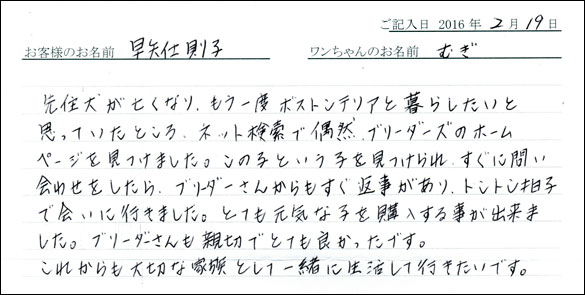 ご記入日 2016 年 2 月 19 日
お客様のお名前 早矢仕則子 ワンちゃんのお名前 むぎ
先住犬が亡くなり、もう一度 ボストンテリアと暮らしたいと
思っていたところ、ネット検索で偶然、ブリーダーズのホーム
ページを見つけました。この子という子を見つけられ、すぐに問い
合わせをしたら、ブリーダーさんからもすぐ返事があり、トントン拍子
で会いに行きました。とても元気な子を購入する事が出来ま
した。ブリーダーさんも親切でとても良かったです。
これからも大切な家族として一緒に生活して行きたいです。